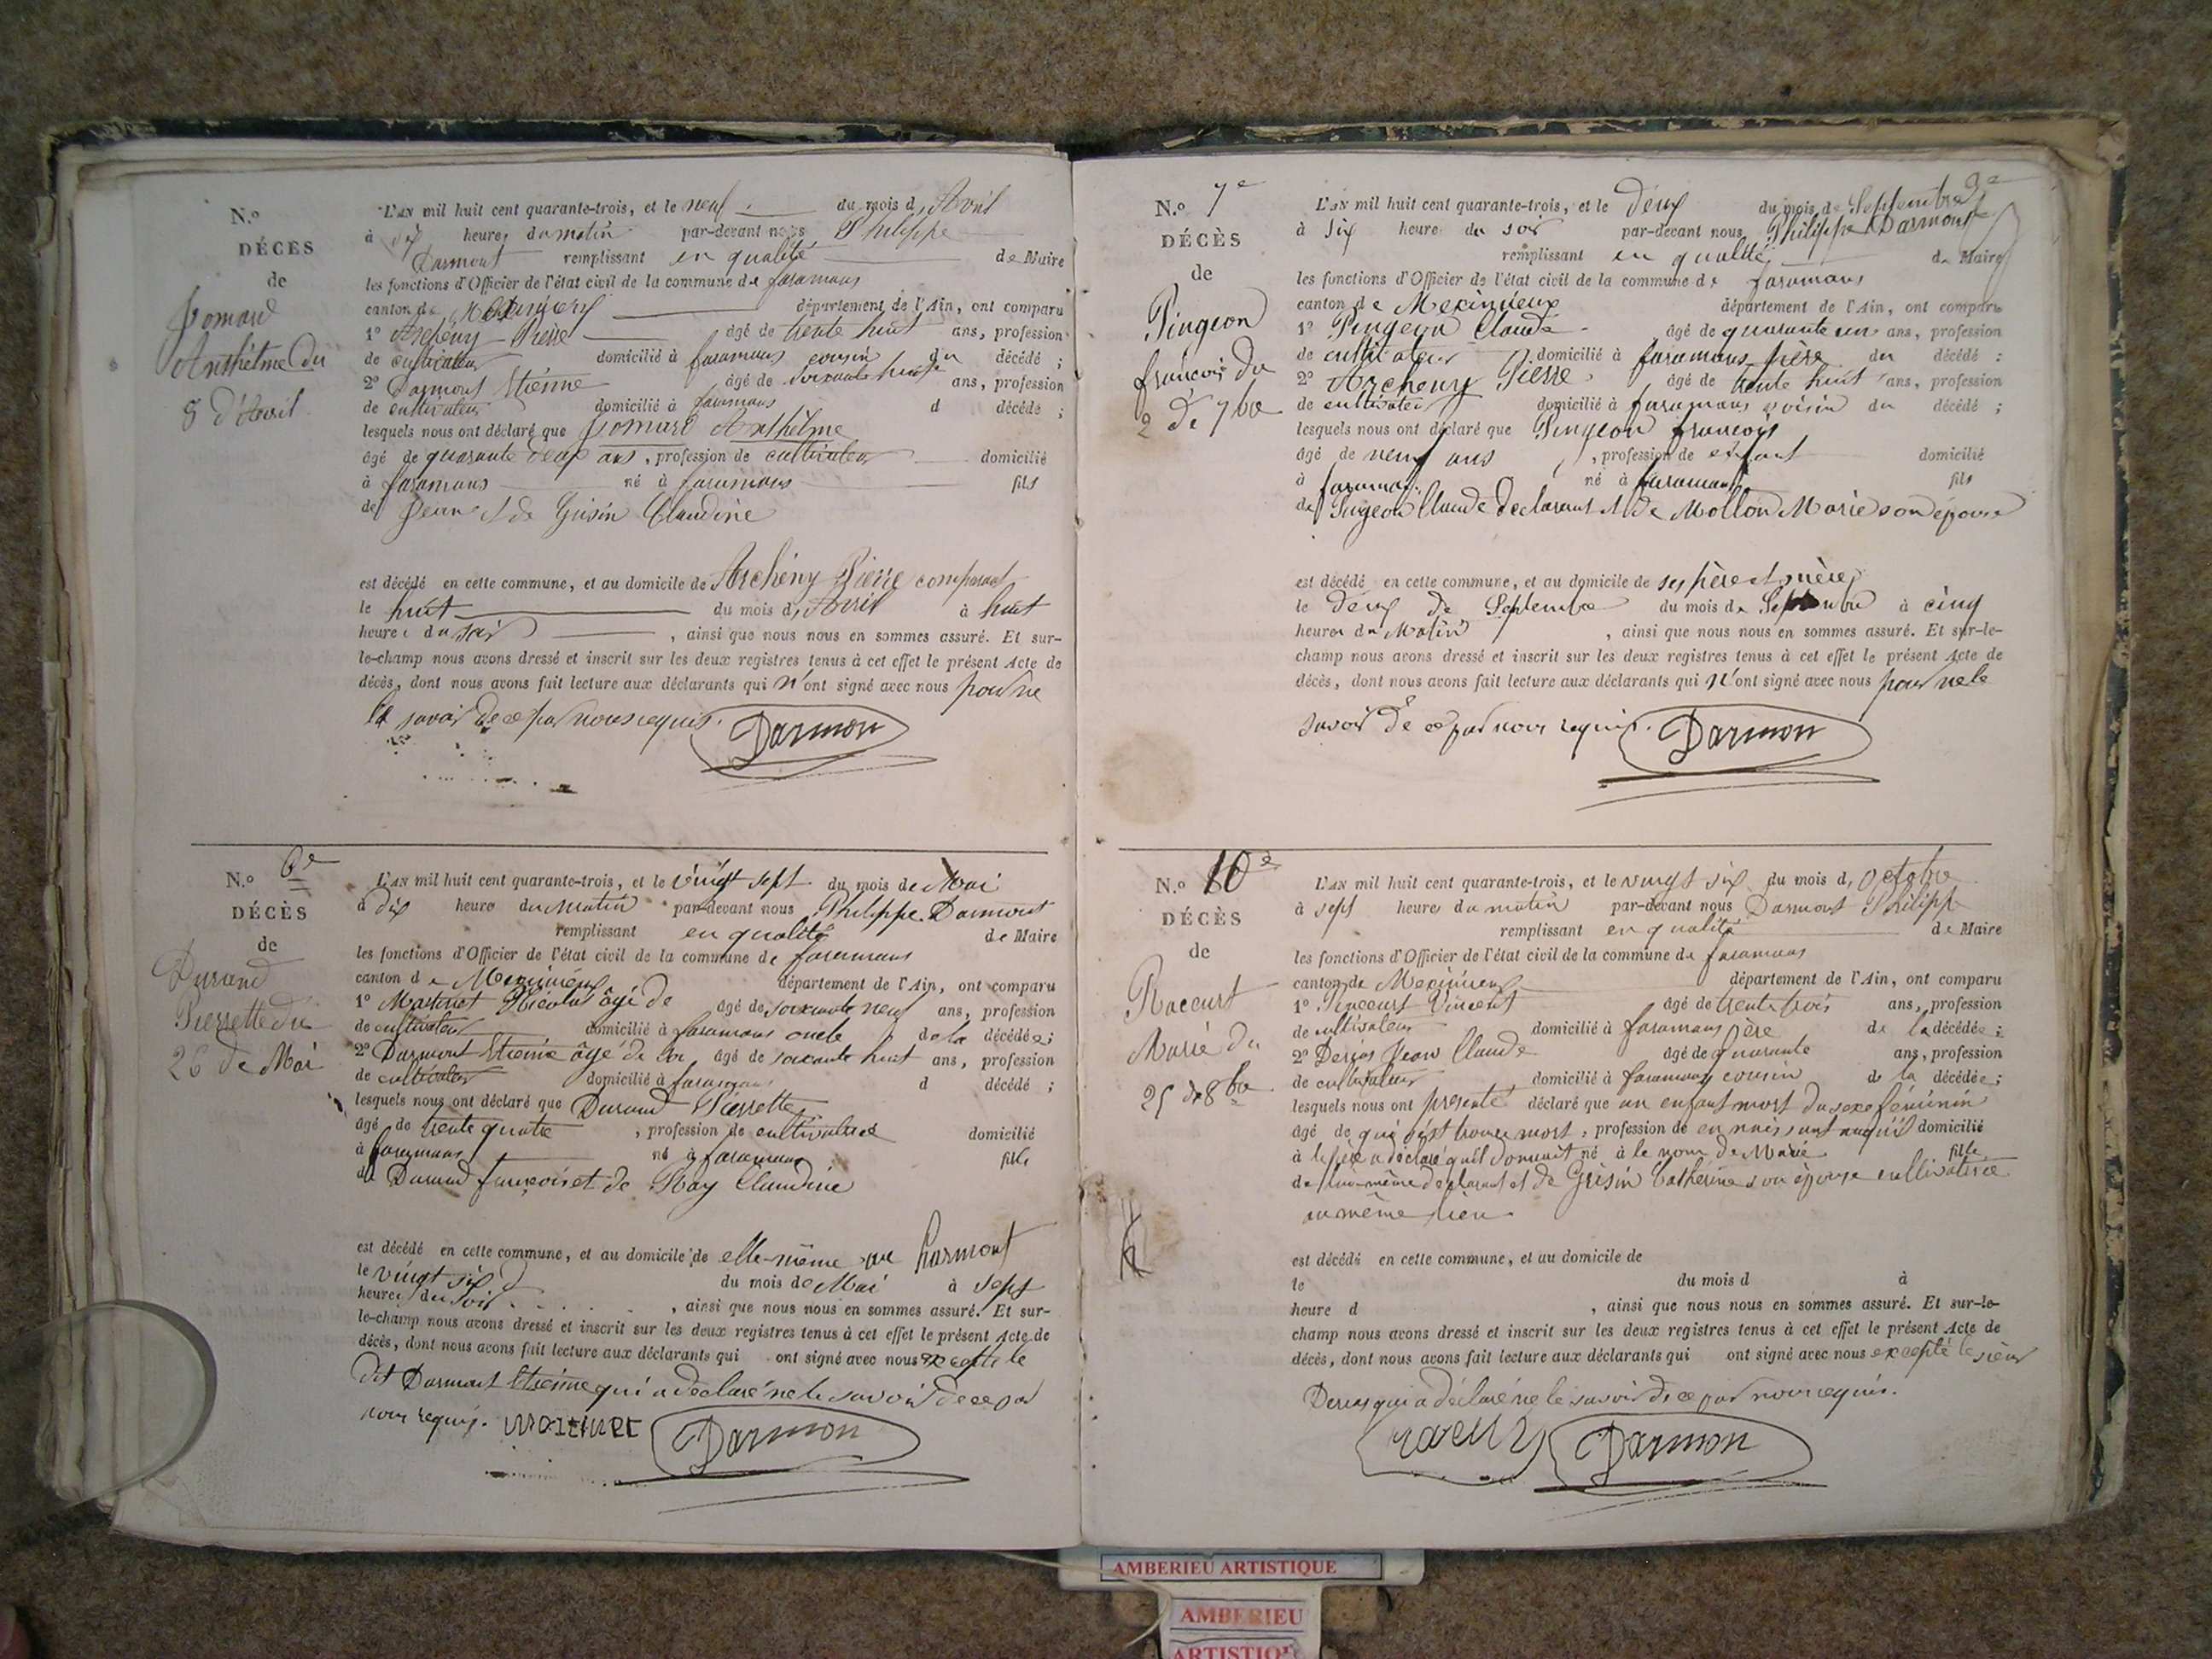 N.°
DÉCÈS
de
Jomard
Anthelme du
8 d'Avril
L'AN mil huit cent quarante-trois, et le neuf du mois d'Avril
à dix heures du matin par-devant nous Philippe
Darmont remplissant en qualité de Maire
les fonctions d'Officier de l'état civil de la commune de faramans
canton de département de l'Ain, ont comparu
1° Archeny Pierre âgé de trente huit ans, profession
de cultivateur domicilié à faramans cousin du décédé ;
2° Darmont Etienne âgé de soixante huit ans, profession
de cultivateur domicilié à faramans d décédé ;
lesquels nous ont déclaré que Jomard Anthelme
âgé de quarante deux ans, profession de cultivateur domicilié
à faramans né à faramans fils
de Jean et de Grisin Claudine
est décédé en cette commune, et au domicile de Archeny Pierre comparant
le huit du mois d'Avril à huit
heures du soir, ainsi que nous nous en sommes assuré. Et sur-
le-champ nous avons dressé et inscrit sur les deux registres tenus à cet effet le présent Acte de
décès, dont nous avons fait lecture aux déclarants qui n'ont signé avec nous pour ne
le savoir de ce par nous requis. Darmon
N.° 6e
DÉCÈS
de
Durand
Pierrette du
26 de Mai
L'AN mil huit cent quarante-trois, et le vingt sept du mois de Mai
à dix heure du matin par-devant nous Philippe Darmont
remplissant en qualité de Maire
les fonctions d'Officier de l'état civil de la commune de faramans
canton de département de l'Ain, ont comparu
1° Martinet Nicolas âgé de âgé de soixante neuf ans, profession
de cultivateur domicilié à faramans oncle de la décédée;
2° Darmont Etienne âgé de âgé de soixante huit ans, profession
de cultivateur domicilié à faramans d décédé ;
lesquels nous ont déclaré que Durand Pierrette
âgé de trente quatre, profession de cultivatrice domicilié
à faramans né à faramans fille
de Durand françois et de Ray Claudine
est décédé en cette commune, et au domicile de elle-même
le vingt six du mois de Mai à sept
heures du soir, ainsi que nous nous en sommes assuré. Et sur-
le-champ nous avons dressé et inscrit sur les deux registres tenus à cet effet le présent Acte de
décès, dont nous avons fait lecture aux déclarants qui ont signé avec nous excepté le
dit Darmont Etienne qui a déclaré ne le savoir de ce par
nous requis. Darmon
9e
N.° 7e
DÉCÈS
de
Pingeon
françois du
2 de 7bre
L'AN mil huit cent quarante-trois, et le deux du mois de Septembre
à six heure du soir par-devant nous Philippe Darmont
remplissant en qualité de Maire
les fonctions d'Officier de l'état civil de la commune de faramans
canton de Meximieux département de l'Ain, ont comparu
1° Pingeon Claude âgé de quarante un ans, profession
de cultivateur domicilié à faramans père du décédé ;
2° Archeny Pierre âgé de trente huit ans, profession
de cultivateur domicilié à faramans voisin du décédé ;
lesquels nous ont déclaré que Pingeon françois
âgé de neuf ans, profession de enfant domicilié
à faramans né à faramans fils
de Pingeon Claude declarant et de Mollon Marie son épouse
est décédé en cette commune, et au domicile de ses père et mère
le deux de Septembre du mois de Septembre à cinq
heures du Matin, ainsi que nous nous en sommes assuré. Et sur-le-
champ nous avons dressé et inscrit sur les deux registres tenus à cet effet le présent Acte de
décès, dont nous avons fait lecture aux déclarants qui n'ont signé avec nous pour ne le
savoir de ce par nous requis. Darmon
N.° 10e
DÉCÈS
de
Raccurt
Marie du
25 de 8bre
L'AN mil huit cent quarante-trois, et le vingt six du mois d'Octobre
à sept heures du matin par-devant nous Darmont Philippe
remplissant en qualité de Maire
les fonctions d'Officier de l'état civil de la commune de faramans
canton de Meximieux département de l'Ain, ont comparu
1° Raccurt Vincent âgé de trente trois ans, profession
de cultivateur domicilié à faramans père de la décédée ;
2° Jean Claude âgé de quarante ans, profession
de cultivateur domicilié à faramans cousin de la décédée ;
lesquels nous ont présenté déclaré que un enfant mort du sexe féminin
âgé de qui s'est trouvé mort, profession de en naissant auquel domicilié
à le père a déclaré qu'il donnait né à le nom de Marie fille
de lui-même declarant et de Grisin Catherine son épouse cultivatrice
au même lieu
est décédé en cette commune, et au domicile de
le du mois d à
heure d, ainsi que nous nous en sommes assuré. Et sur-le-
champ nous avons dressé et inscrit sur les deux registres tenus à cet effet le présent Acte de
décès, dont nous avons fait lecture aux déclarants qui ont signé avec nous excepté le sieur
qui a déclaré ne le savoir de ce par nous requis.
Darmon
AMBERIEU ARTISTIQUE
AMBERIEU
ARTISTIQUE